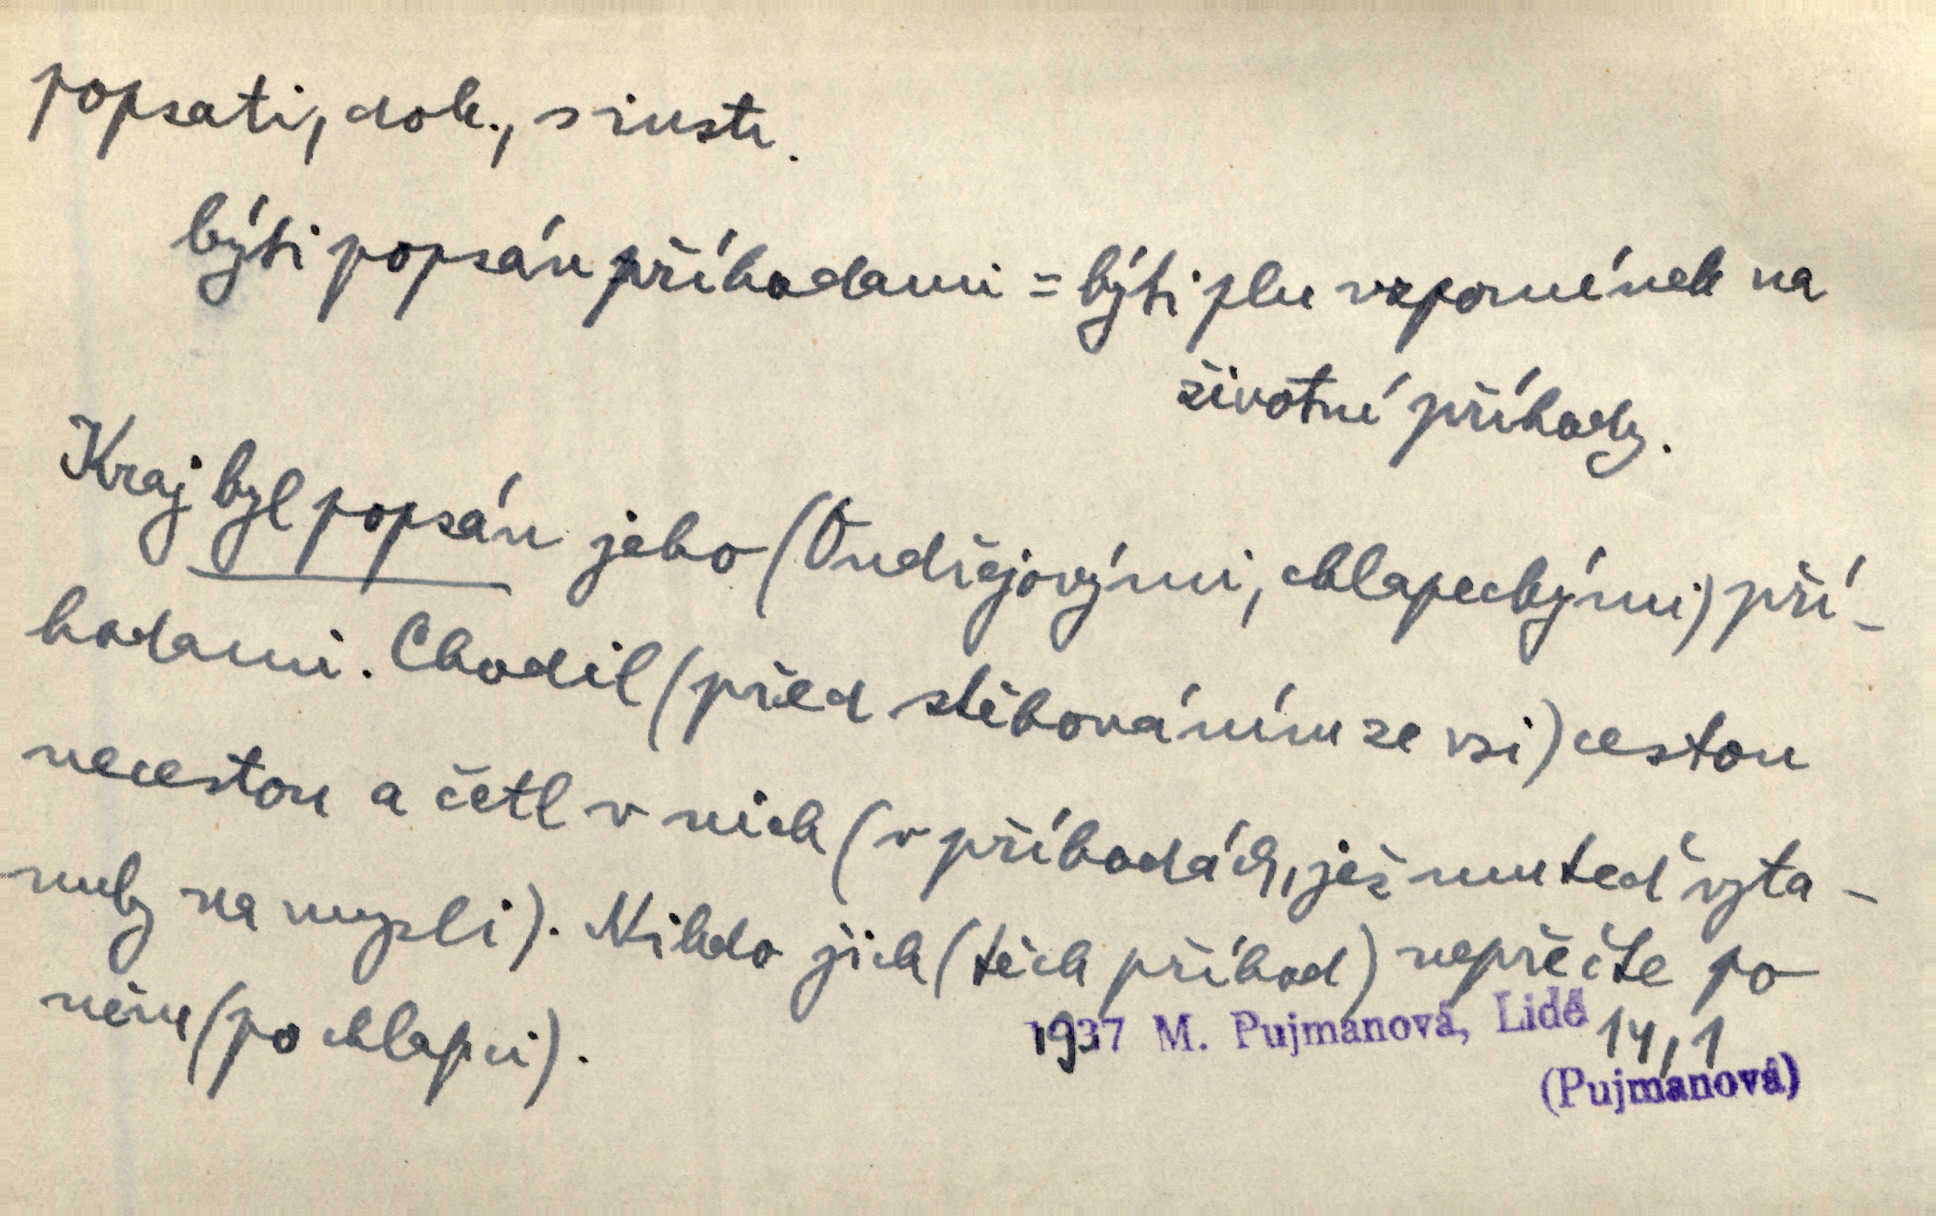 popsati, dok., s instr.
býti popsán příhodami = býti pln vzpomínek na
životní příhody.
Kraj byl popsán jeho (Ondřejovými, chlapeckými) pří-
hodami. Chodil (před stěhováním ze vsi) cestou
necestou a četl v nich (v příhodách, jež mu teď vyta-
nuly na mysli). Nikdo jich (těch příhod) nepřečte po
něm (po chlapci).
1937 M. Pujmanová, Lidé 14,1
(Pujmanová)